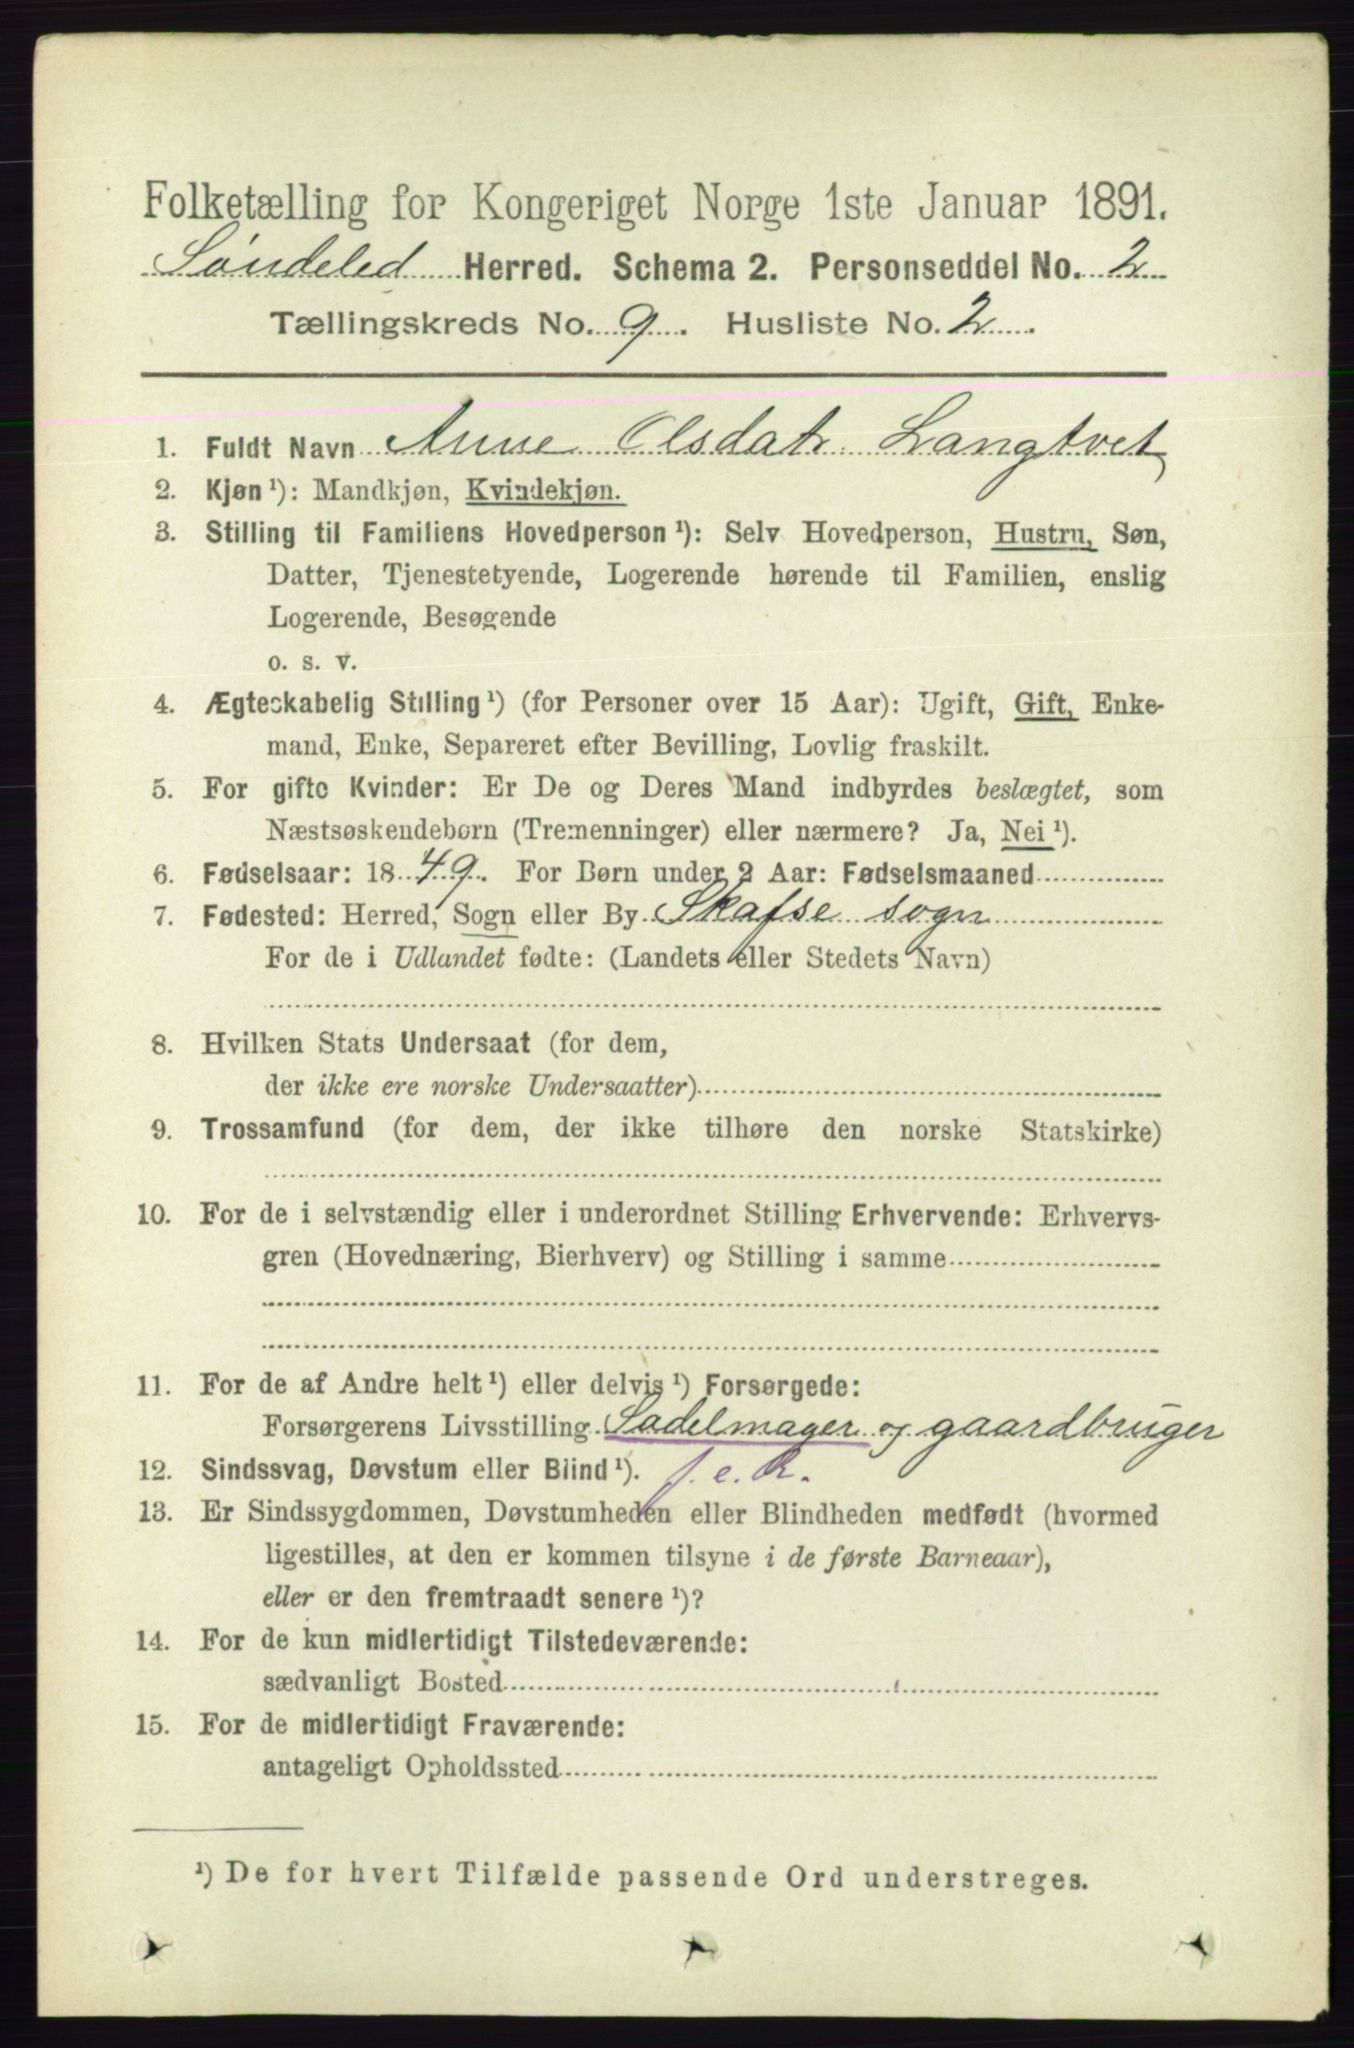 Folketælling for Kongeriget Norge 1ste Januar 1891.
Søndeled Herred. Schema 2. Personseddel No. 2
Tællingskreds No. 9. Husliste No. 2.
1. Fuldt Navn Anne Olsdatr Langtvet
2. Kjøn ¹): Mandkjøn, Kvindekjøn.
3. Stilling til Familiens Hovedperson ¹): Selv Hovedperson, Hustru, Søn,
Datter, Tjenestetyende, Logerende hørende til Familien, enslig
Logerende, Besøgende
o. s. v.
4. Ægteskabelig Stilling ¹) (for Personer over 15 Aar): Ugift, Gift, Enke-
mand, Enke, Separeret efter Bevilling, Lovlig fraskilt.
5. For gifte Kvinder: Er De og Deres Mand indbyrdes beslægtet, som
Næstsøskendebørn (Tremenninger) eller nærmere? Ja, Nei ¹).
6. Fødselsaar: 1849. For Børn under 2 Aar: Fødselsmaaned
7. Fødested: Herred, Sogn eller By Skafse sogn
For de i Udlandet fødte: (Landets eller Stedets Navn)
8. Hvilken Stats Undersaat (for dem,
der ikke ere norske Undersaatter)
9. Trossamfund (for dem, der ikke tilhøre den norske Statskirke)
10. For de i selvstændig eller i underordnet Stilling Erhvervende: Erhvervs-
gren (Hovednæring, Bierhverv) og Stilling i samme
11. For de af Andre helt ¹) eller delvis ¹) Forsørgede:
Forsørgerens Livsstilling Sadelmager og gaardbruger
12. Sindssvag, Døvstum eller Blind ¹). f. e. R.
13. Er Sindssygdommen, Døvstumheden eller Blindheden medfødt (hvormed
ligestilles, at den er kommen tilsyne i de første Barneaar),
eller er den fremtraadt senere ¹)?
14. For de kun midlertidigt Tilstedeværende:
sædvanligt Bosted
15. For de midlertidigt Fraværende:
antageligt Opholdssted
¹) De for hvert Tilfælde passende Ord understreges.